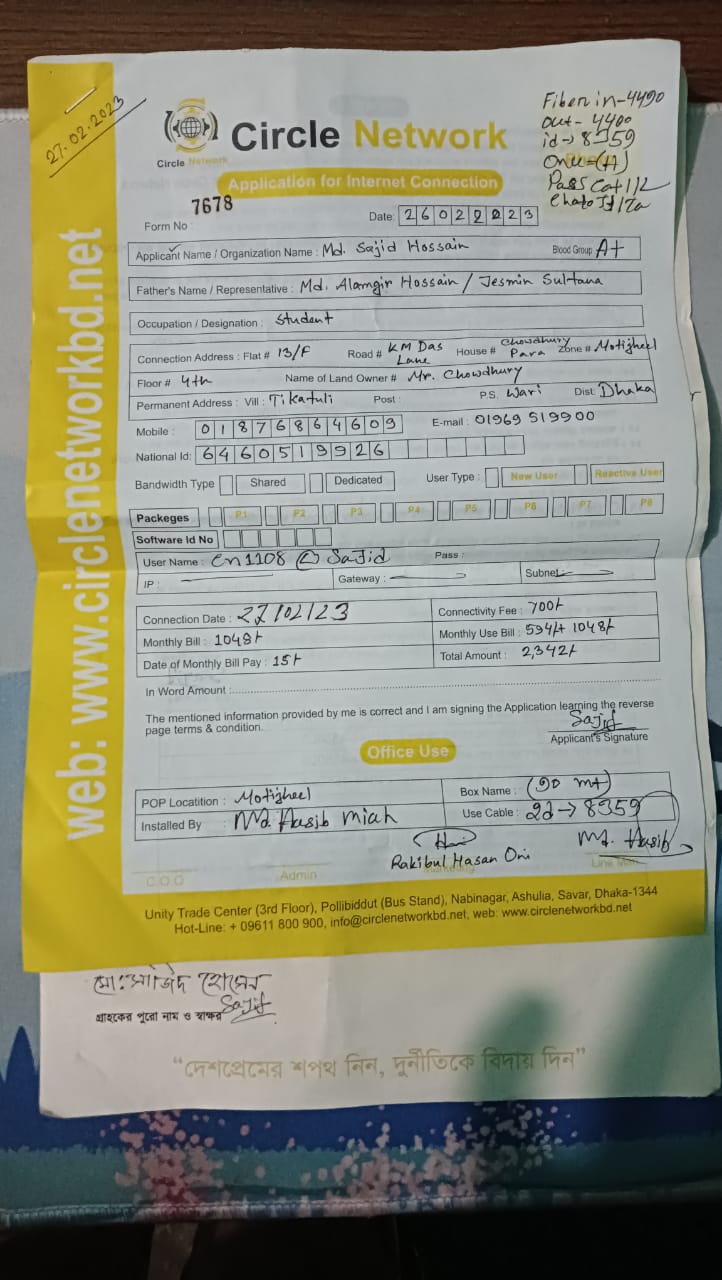 27.02.2023
Fiber in-4490
Out- 4400
id→ 8359
Onu
Pass Cat 1/2
Circle Network
Circle Network
Application for Internet Connection
Form No : 7678
Date: 26022023
Applicant Name / Organization Name : Md. Sajid Hossain Blood Group A+
Father's Name / Representative : Md. Alamgir Hossain / Jesmin Sultana
Occupation / Designation : Student
Connection Address : Flat # 13/F Road # KM Das Lane House # Chowdhury Para Zone # Motijheel
Floor # 4th Name of Land Owner # Mr. Chowdhury
Permanent Address : Vill : Tikatuli Post : P.S. Wari Dist. Dhaka
Mobile : 01876864609 E-mail : 01969 519900
National Id: 6460519926
Bandwidth Type Shared Dedicated User Type : New User Reactive User
Packeges P1 P2 P3 P4 P5 P6 P7 P8
Software Id No
User Name : Cn1108 Sajid Pass :
IP : Gateway : Subnet
Connection Date : 27/02/23 Connectivity Fee : 700/-
Monthly Bill : 1048/- Monthly Use Bill : 594/+ 1048/-
Date of Monthly Bill Pay : 15/- Total Amount : 2,342/-
In Word Amount :
The mentioned information provided by me is correct and I am signing the Application learning the reverse
page terms & condition.
Sajid
Applicant's Signature
Office Use
POP Locatition : Motijheel Box Name : (90 mt)
Installed By : Md. Hasib Miah Use Cable : 2d→8359
Rakibul Hasan Oni Md. Hasib
C.O.O Admin Marketing Line Man
Unity Trade Center (3rd Floor), Pollibiddut (Bus Stand), Nabinagar, Ashulia, Savar, Dhaka-1344
Hot-Line: + 09611 800 900, info@circlenetworkbd.net, web: www.circlenetworkbd.net
web: www.circlenetworkbd.net
মোঃ সাজিদ হোসেন
Sajid
গ্রাহকের পুরো নাম ও স্বাক্ষর
“দেশপ্রেমের শপথ নিন, দুর্নীতিকে বিদায় দিন”